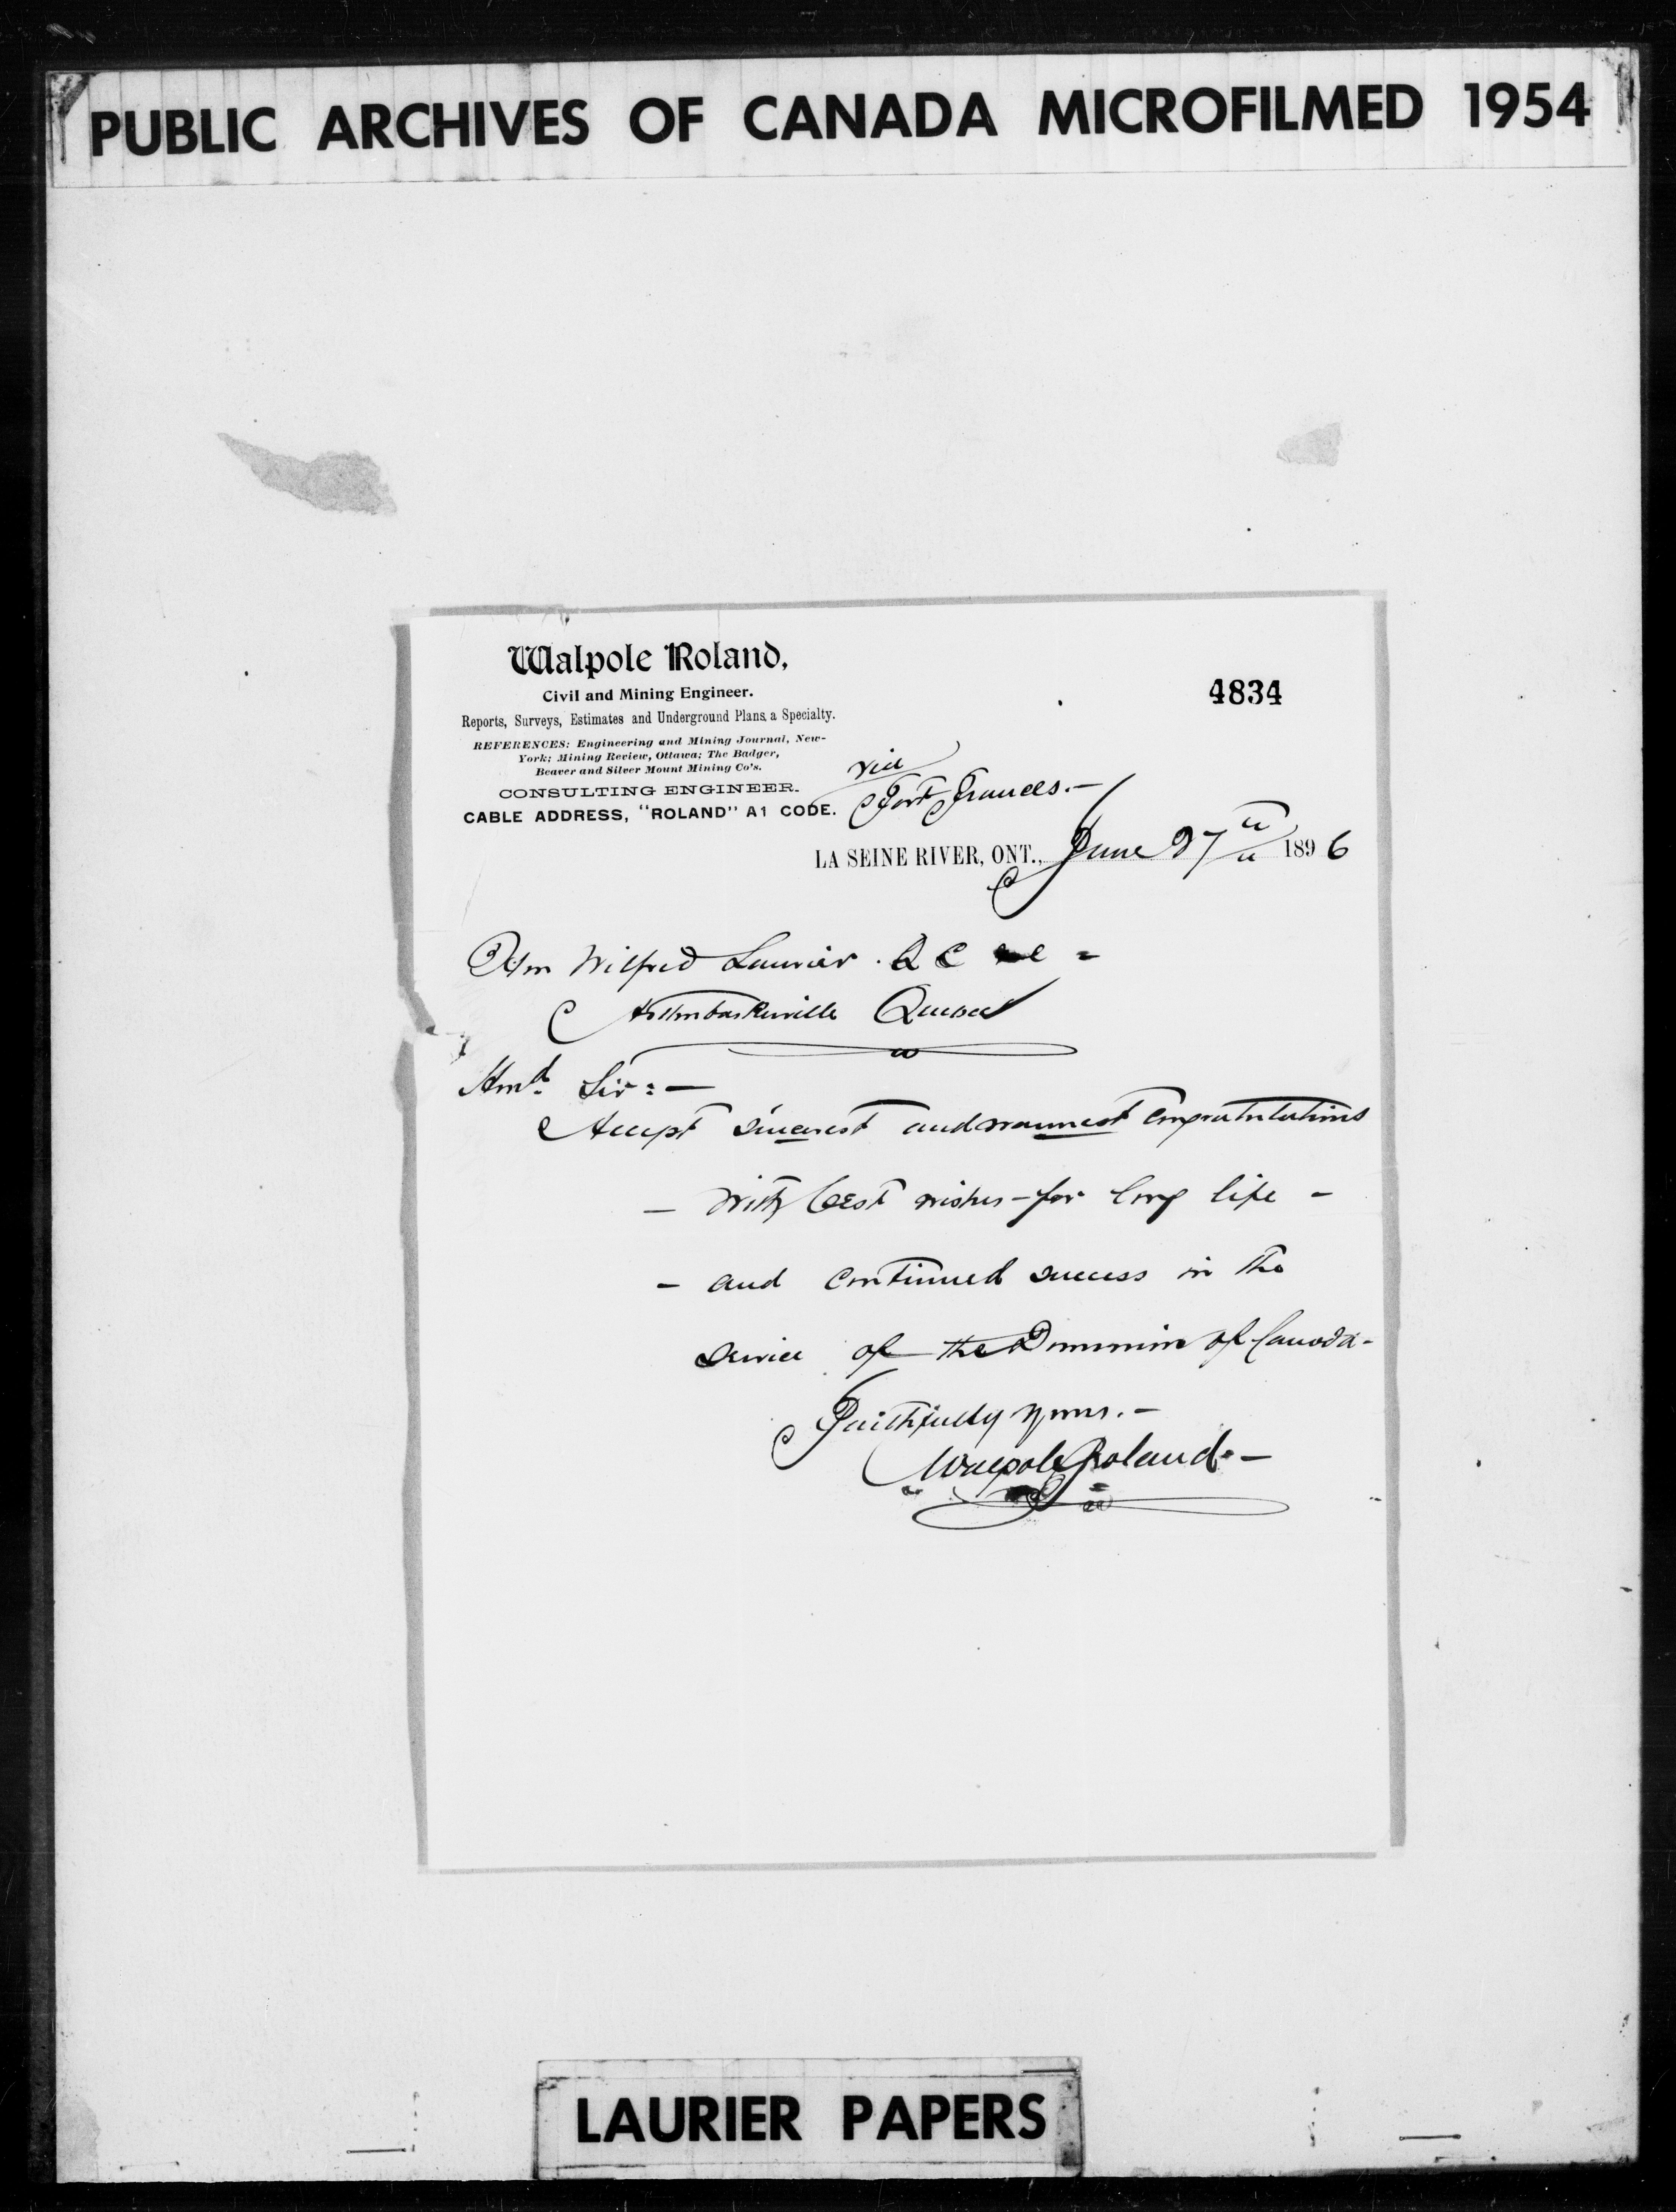 PUBLIC ARCHIVES OF CANADA MICROFILMED 1954
Walpole Roland,
Civil and Mining Engineer.
Reports, Surveys, Estimates and Underground Plans a Specialty.
REFERENCES: Engineering and Mining Journal, New-
York; Mining Review, Ottawa; The Badger,
Beaver and Silver Mount Mining Co's.
CONSULTING ENGINEER.
CABLE ADDRESS, "ROLAND" A1 CODE.
4834
via
Fort Frances.—
LA SEINE RIVER, ONT., June 27th 1896
Hon Wilfred Laurier. Q C
Arthabaskaville Quebec
Hond Sir:—
Accept sincerest and warmest congratulations
— With best wishes — for long life —
— and continued success in the
service of the Dominion of Canada—
Faithfully yours.—
Walpole Roland.—
LAURIER PAPERS